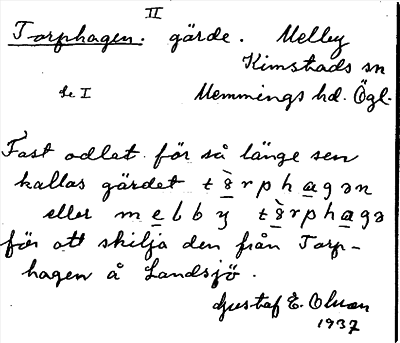 II
Torphagen. gärde. Melby
Kimstads sn
Se I Memmings hd. Ögl.
Fast odlat för så länge sen
kallas gärdet t ɜ̀ r p h a g ə n
eller m e l b y t ɜ̀ r p h a g ə
för att skilja den från Torp-
hagen å Landsjö.
Gustaf E. Olsson
1937